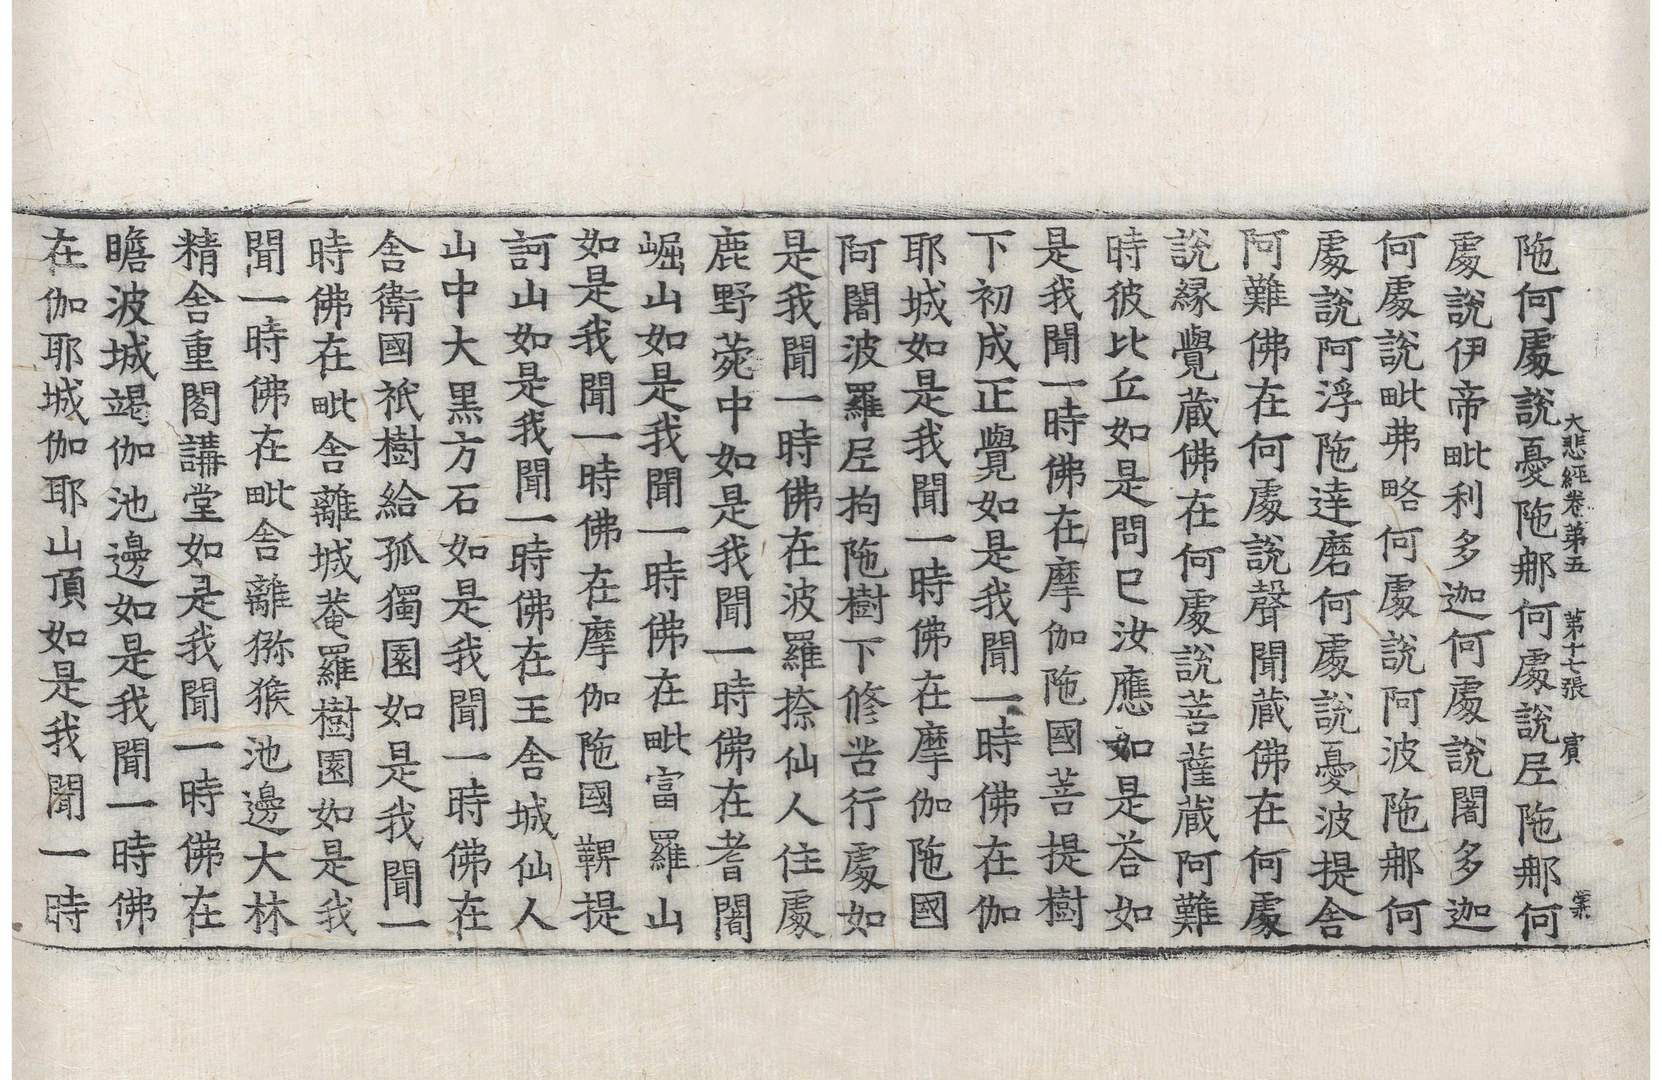 大悲經卷第五 第十七張 賓
陁何處說憂陁郍何處說尼陁郍何
處說伊帝毗利多迦何處說闍多迦
何處說毗弗略何處說阿波陁郍何
處說阿浮陁達磨何處說憂波提舍
阿難佛在何處說聲聞藏佛在何處
說緣覺藏佛在何處說菩薩藏阿難
時彼比丘如是問已汝應如是荅如
是我聞一時佛在摩伽陁國菩提樹
下初成正覺如是我聞一時佛在伽
耶城如是我聞一時佛在摩伽陁國
阿闍波羅尼拘陁樹下修苦行處如
是我聞一時佛在波羅捺仙人住處
鹿野菀中如是我聞一時佛在耆闍
崛山如是我聞一時佛在毗富羅山
如是我聞一時佛在摩伽陁國鞞提
訶山如是我聞一時佛在王舍城仙人
山中大黑方石如是我聞一時佛在
舍衛國祇樹給孤獨園如是我聞一
時佛在毗舍離城菴羅樹園如是我
聞一時佛在毗舍離猕猴池邊大林
精舍重閣講堂如是我聞一時佛在
瞻波城竭伽池邊如是我聞一時佛
在伽耶城伽耶山頂如是我聞一時